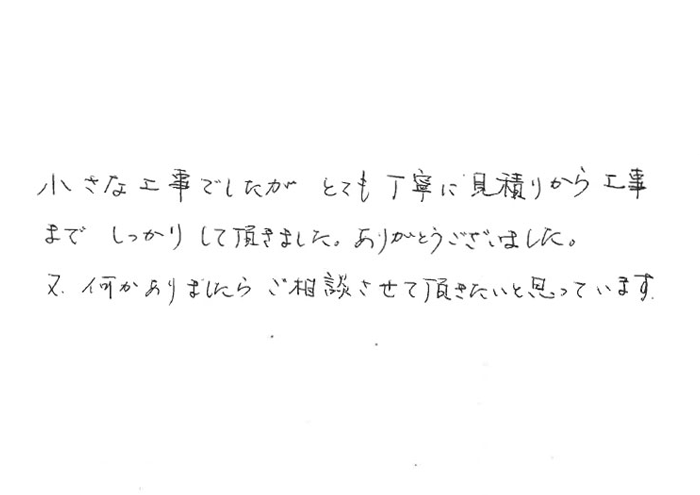 小さな工事でしたが とても丁寧に見積りから工事
まで しっかりして頂きました。ありがとうございました。
又、何かありましたら ご相談させて頂きたいと思っています。